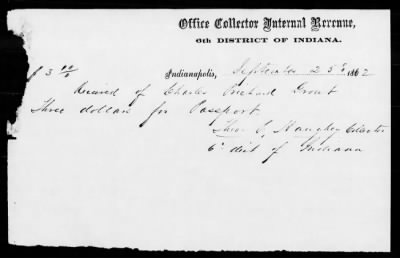 Office Collector Internal Revenue,
6th DISTRICT OF INDIANA.
$3 00/0 Indianapolis, September 25th 1862
Received of Charles Prichard Grout
Three dollars for Passport.
Theo. P. Haughey Collector
6th dist of Indiana